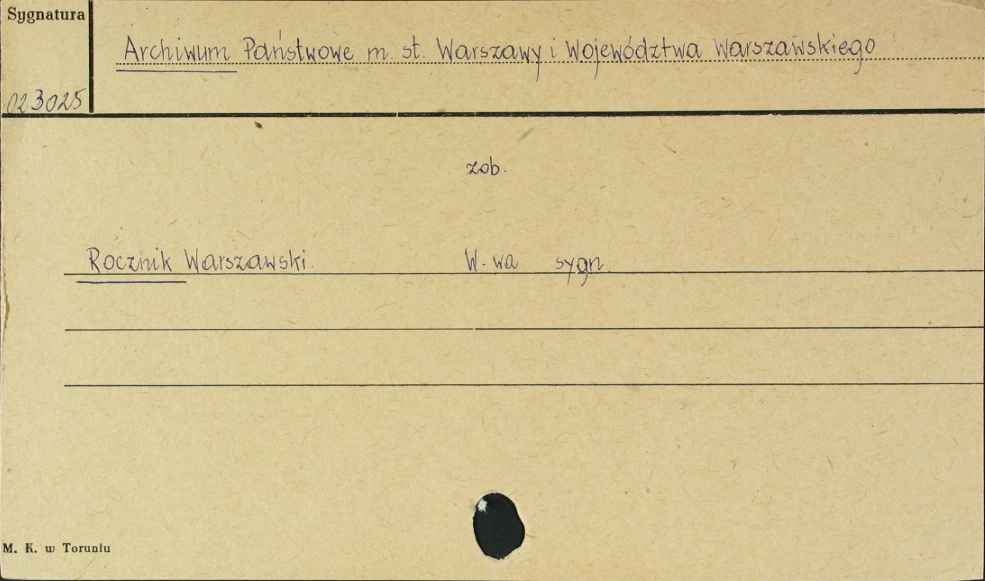 Sygnatura
Archiwum Państwowe m. st. Warszawy i Województwa Warszawskiego
023025
zob.
Rocznik Warszawski. W-wa sygn.
M. K. w Toruniu